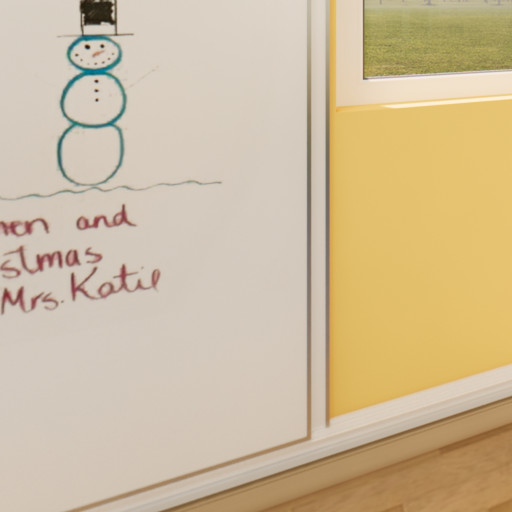 nen and
stmas
Mrs. Katie